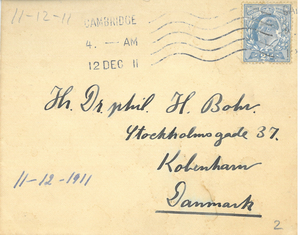 11-12-11
CAMBRIDGE
4. — AM
12 DEC 11
Hr. Dr. phil. H. Bohr.
Stockholmsgade 37.
København
11-12-1911
Danmark
2